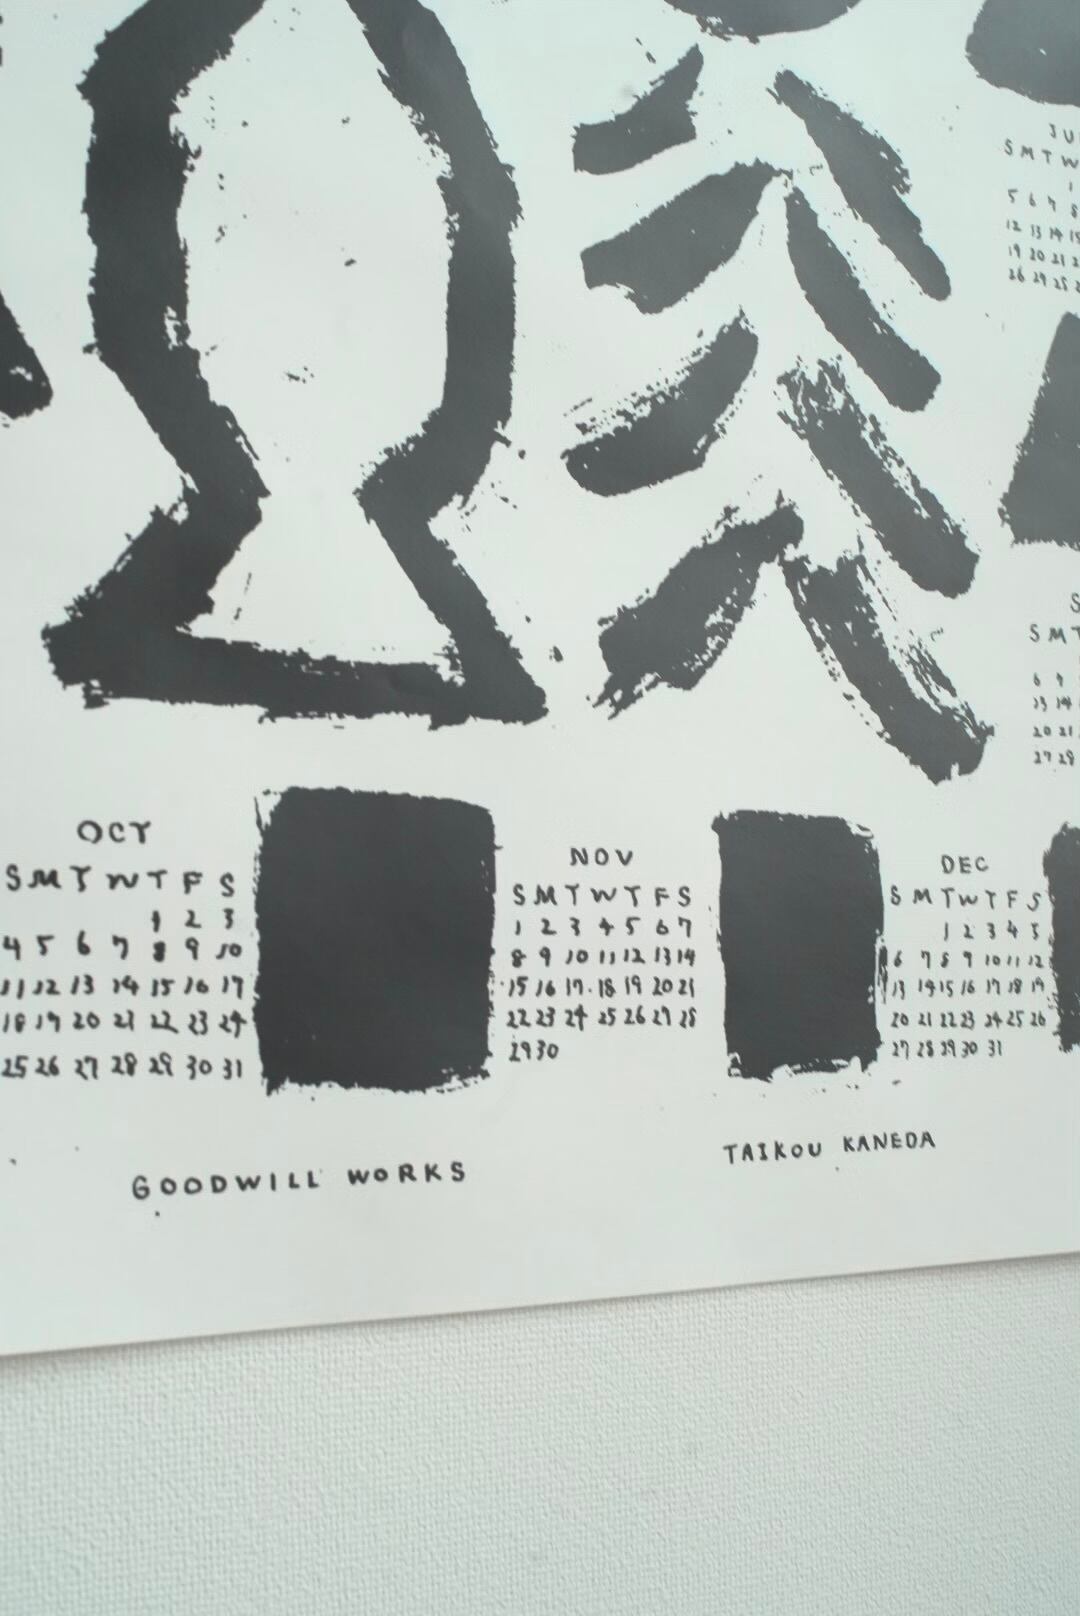 JU
S M T W
1
5 6 7 8
12 13 14 15
19 20 21 2
26 27 28
S
S M T
6 7
13 14
20 21
27 28
OCT
S M T W T F S
1 2 3
4 5 6 7 8 9 10
11 12 13 14 15 16 17
18 19 20 21 22 23 24
25 26 27 28 29 30 31
NOV
S M T W T F S
1 2 3 4 5 6 7
8 9 10 11 12 13 14
15 16 17 18 19 20 21
22 23 24 25 26 27 28
29 30
DEC
S M T W T F S
1 2 3 4 5
6 7 8 9 10 11 12
13 14 15 16 17 18 19
20 21 22 23 24 25 26
27 28 29 30 31
GOODWILL WORKS
TAIKOU KANEDA